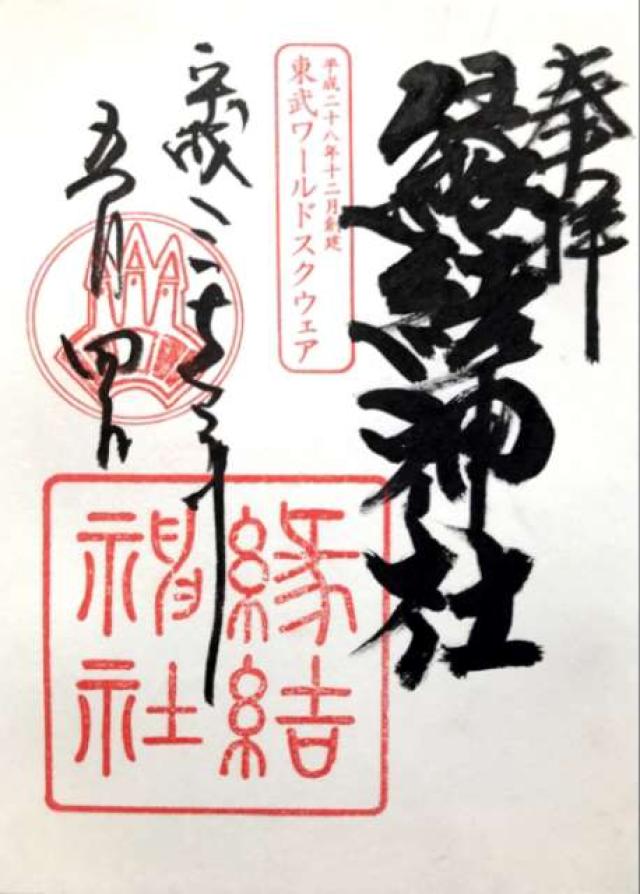 奉拝
縁結神社
平成二十八年十二月創建
東武ワールドスクウェア
平成二十九年
五月四日
縁結
神社